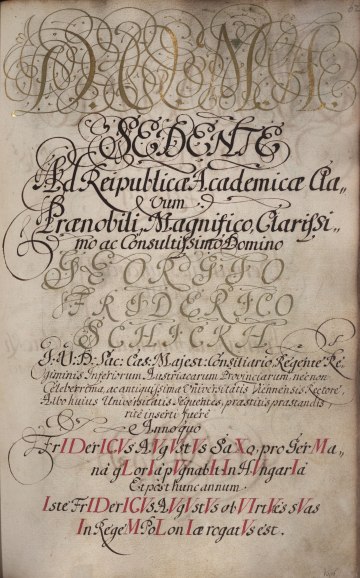 D. O. M. A.
SEDENTE
Ad Reipublicæ Academicæ Cla-
vum
Prænobili, Magnifico, Clarissi-
mo ac Consultissimo Domino
GEORGIO
FRIDERICO
SCHICKH
I: U: D: Sac: Cæs: Majest: Consiliario Regente Re-
giminis Inferiorum Austriacarum Provinciarum, nec non
Celeberrimæ, ac antiquissimæ Universitatis Viennensis Rectore,
Albo huius Universitatis Sequentes, præstitis præstandis
ritè inserti fuere
Anno quo
FrIDerICVs AVgVstVs SaXo, pro GerMa-
nà gLorIa pVgnabIt In HVngarIa
Et post hunc annum
Iste FrIDerICVs AVgVstVs ob VIrtVtes sVas
In Rege PoLonIæ rogatVs est.